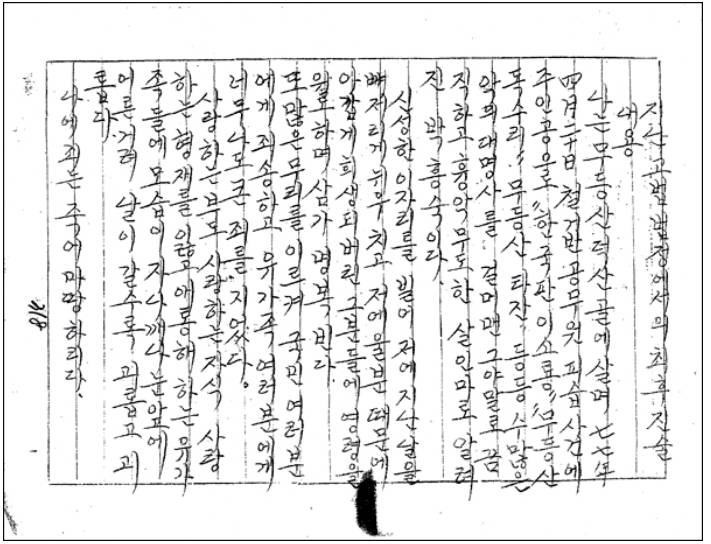 지난 공판 법정에서의 최후 진술
내용
나는 무등산 덕산골에 살며 七七年
四月二十日 철거반 공무원 피습 사건에
주인공으로 "한국판 이소룡" "무등산
독수리" "무등산 타잔" 등등 수많은
악의 대명사를 걸머맨 그야말로 끔
직하고 흉악무도한 살인마로 알려
진 박흥숙이다.
신성한 이자리를 빌어 저에 지난날을
뼈저리게 뉘우치고 저에 울분 때문에
아깝게 희생되버린 그분들에 영령을
위로하며 삼가 명복 빈다.
또 많은 무리를 이르켜 국민 여러분
에게 죄송하고 유가족 여러분에게
너무나도 큰 죄를 지었다.
사랑하는 부모 사랑하는 자식 사랑
하는 형제를 잃고 애통해 하는 유가
족들에 모습이 자나깨나 눈앞에
어른거려 날이 갈수록 괴롭고 괴
롭다.
나에 죄는 죽어 마땅하리다.